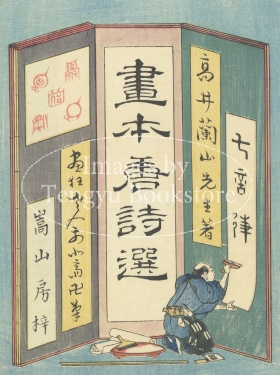 七言律
高井蘭山先生著
畫本唐詩選
画狂老人前北斎卍筆
嵩山房梓
Image by
Tengyu Bookstore